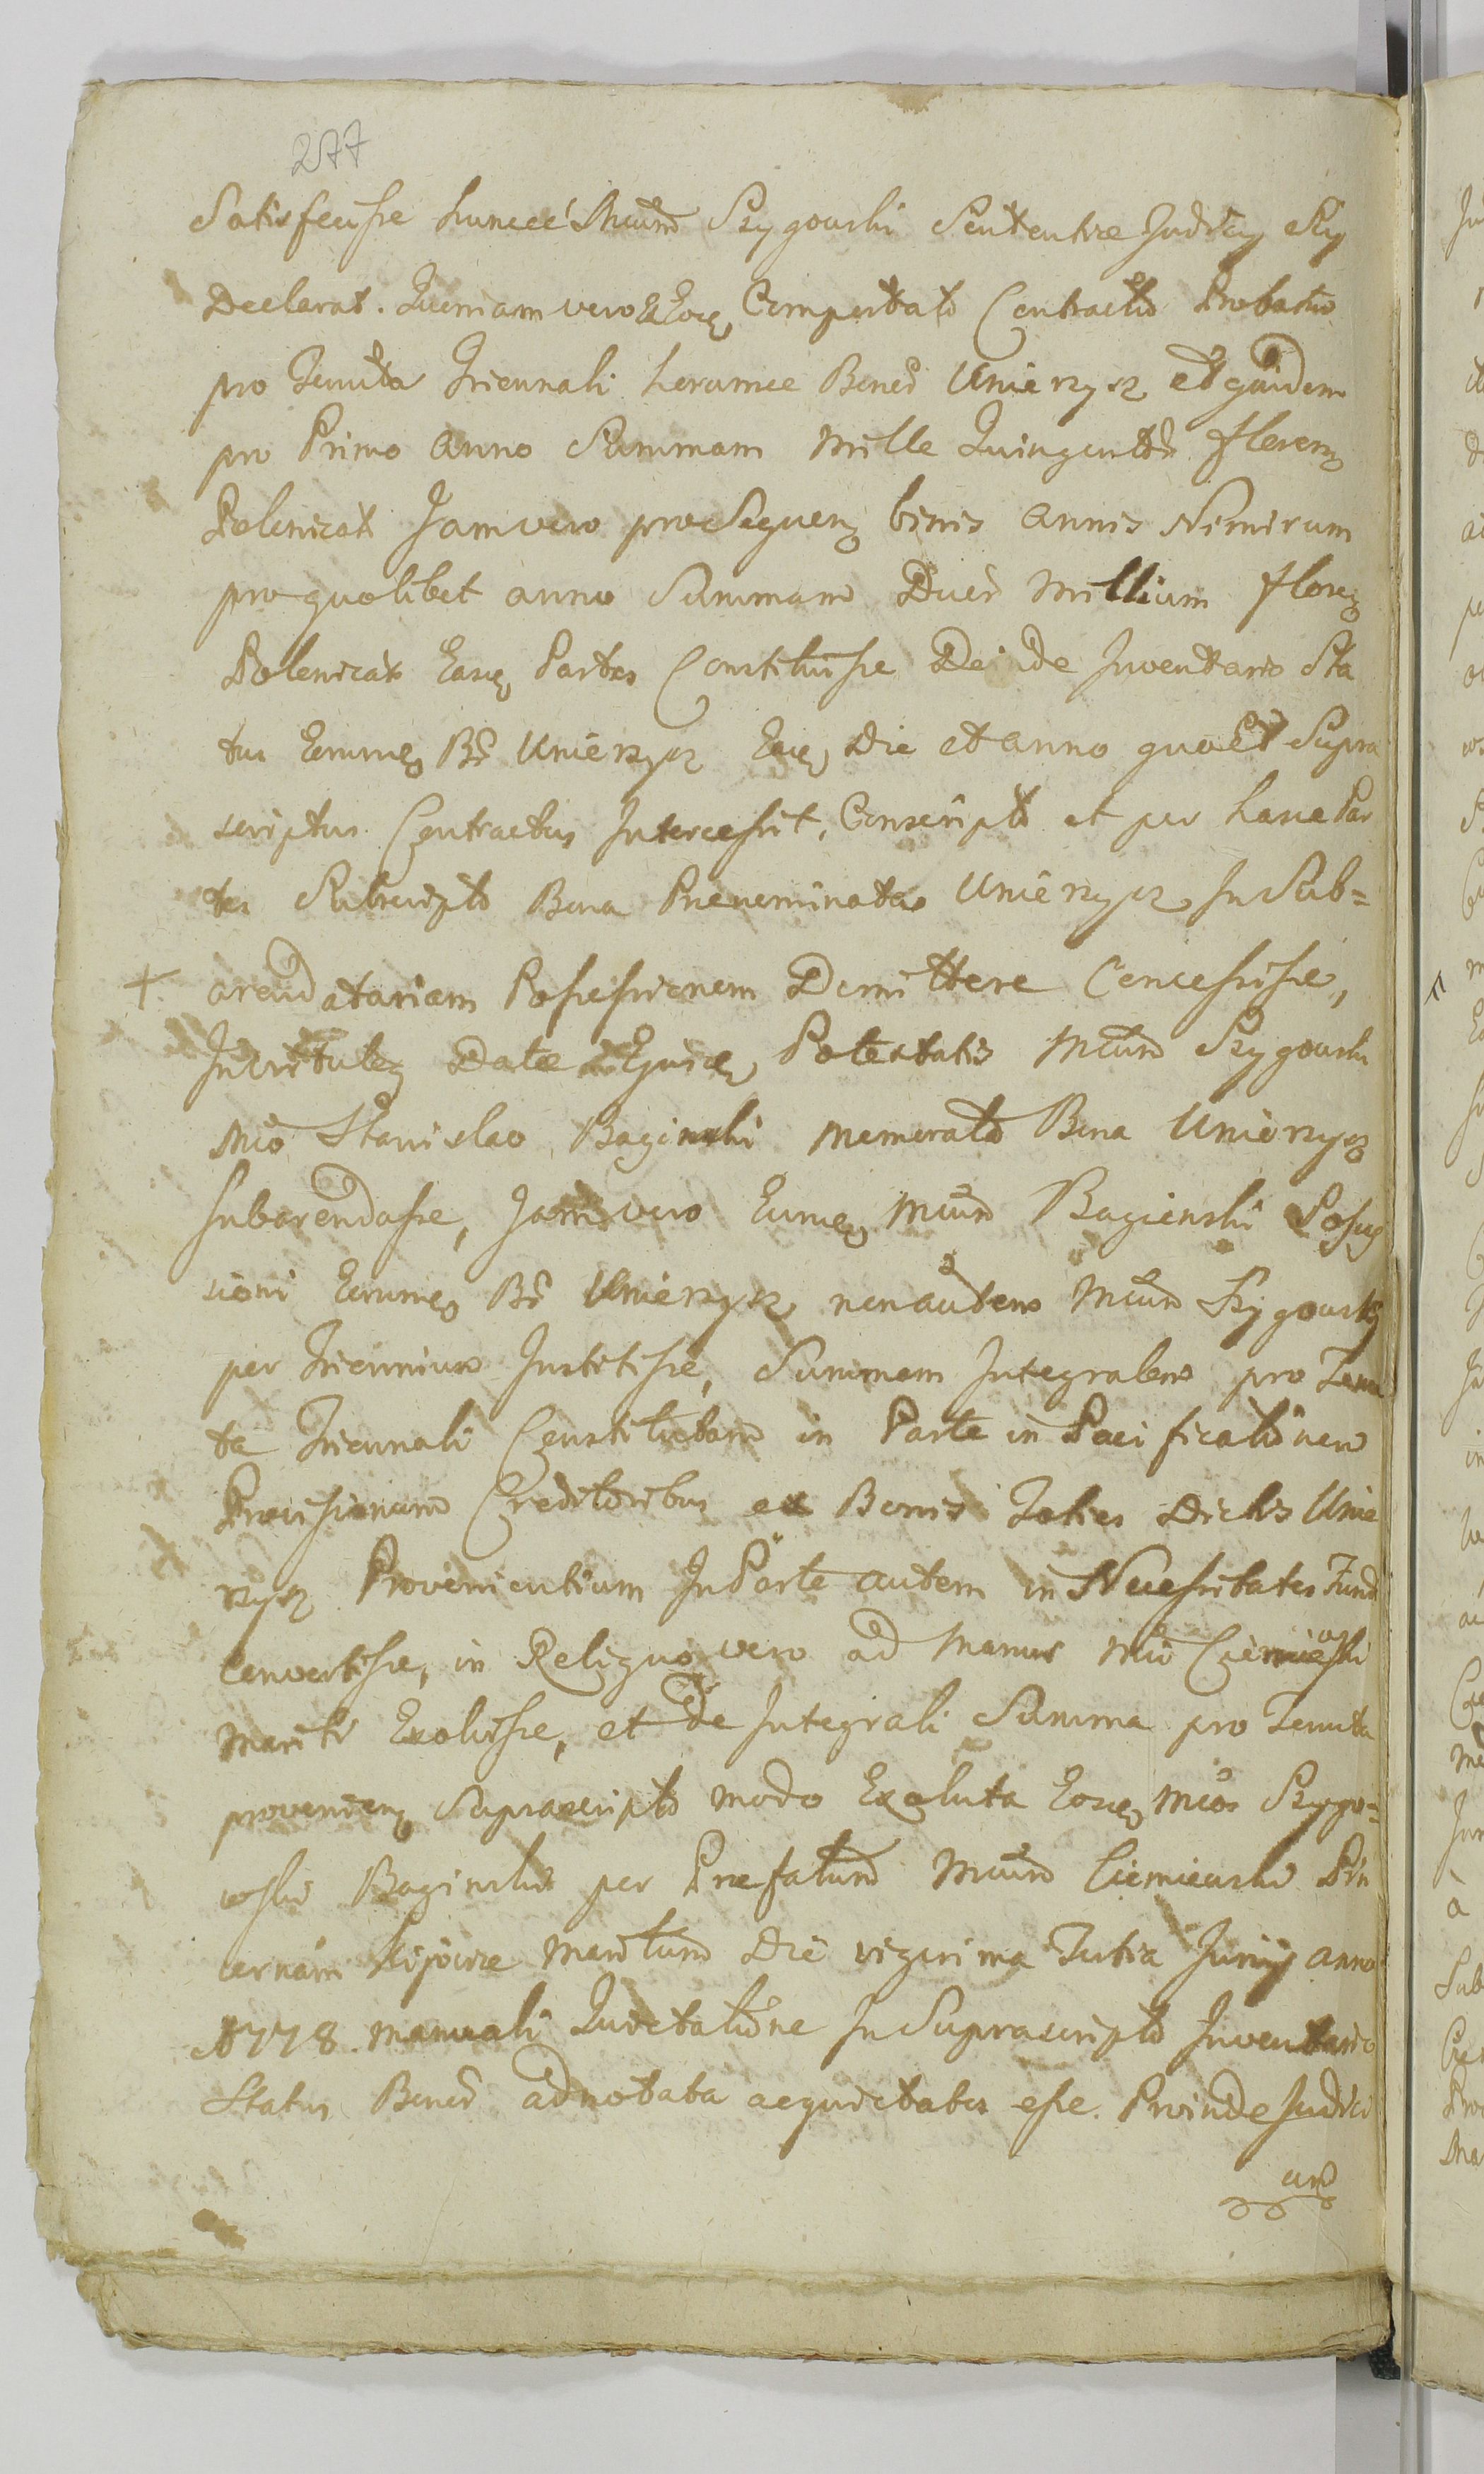 277
Satisfecisse huncce Mcum Szygowski Sententiae Judicij Sui
Declarat. Quoniam vero Eoq Comportato Contractu Probatur
pro Tenuta Triennali horumce Bonor Unierzysz et quidem
pro Primo anno Summam Mille Quingentor floren
Polonical Jamvero pro Sequen binis annis Nimirum
pro quolibet anno Summam Duor Millium floren
Polonical Easq Partes Constituisse Deinde Inventario Sta
tus Eorumq Br Unierzysz Eoq Die et anno quo et Supra
scriptus Contractus Intercessit, Conscripto et per hasce Par
tes Subscripto Bona Praenominata Unierzysz In Sub=
arendatariam Possessionem Dimittere Concessisse,
In virtute Datae Ejusq Potestatis Mcum Szygowski
Mco Stanislao Baginski memorata Bona Unierzysz
subarendasse, Jamvero Eumq Mcum Baginski Posses
sioni Eorumq Br Unierzysz non autem Mcum Szygowski
per Triennium Institisse, Summam Integralem pro Tenu
ta Triennali Constitutam in Parte in Pacificationem
Provisionum Creditoribus ex Bonis Toties Dictis Unie
rzysz Provenientium In Parte autem in Necessitates Fundi
convertisse, in Reliquo vero ad Manus Mci Ciemiewski
Mariti Exolvisse, et de Integrali Summa pro Tenuta
provenien Suprascripto modo Exoluta Eosq Mcos Szygo=
wski Baginski per Praefatum Mcum Ciemiewski Pin
cernam Kijoviae Maritum Die vigesima Tertia Junij anno
1778. manuali Quietatione In Suprascripto Inventario
Status Bonor adnotata aequietatos esse. Proinde Judici
um